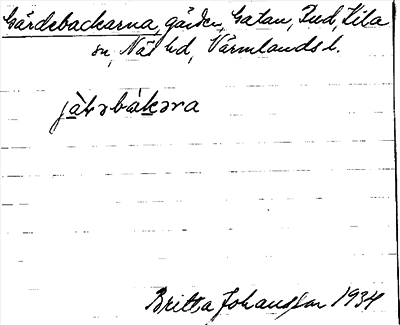 Gärdebackarna, gården, Gatan, Fud, Kila
sn, Näs hd, Värmlands l.
jä̀ɽəbàkəra
Britta Johansson 1934